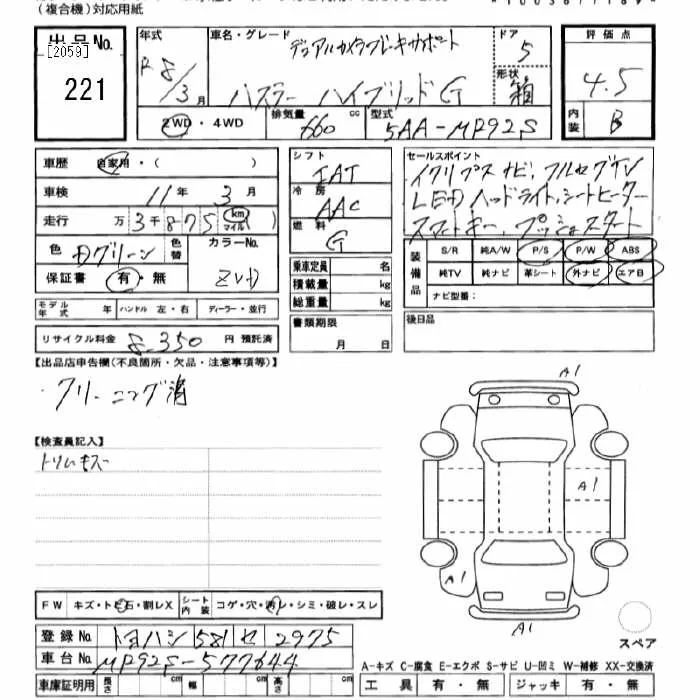 (複合機)対応用紙
出品No.
[2059]
221
年式
R 8/3月
車名・グレード
デュアルカメラブレーキサポート
ハスラー ハイブリッド G
ドア
5
形状
箱
評価点
4.5
内装
B
2WD・4WD
排気量
660 cc
型式
5AA-MR92S
車歴
自家用・( )
車検
11年 3月
走行
万 3千875 km マイル )
色
Dグリーン
色替
カラーNo.
ZVD
保証書
有・無
モデル年式 年
ハンドル 左・右
ディーラー・並行
リサイクル料金 8,350 円 預託済
シフト
IAT
冷房
AAC
燃料
G
乗車定員 名
積載量 kg
総重量 kg
書類期限
月 日
セールスポイント
イクリプスナビ、フルセグTV
LEDヘッドライト、シートヒーター
スマートキー、プッシュスタート
装備品
S/R 純A/W P/S P/W ABS
純TV 純ナビ 革シート 外ナビ エアB
ナビ型番:
後日品
【出品店申告欄(不良箇所・欠品・注意事項等)】
・クリーニング済
【検査員記入】
トリムキズ
A1
A1
A1
A1
FW キズ・トビ石・割レX
シート内装 コゲ・穴・汚レ・シミ・破レ・スレ
登録No. トヨハシ 581 セ 2975
車台No. MR92S-577644
車庫証明用 長さ cm 幅 cm 高さ cm
スペア
A-キズ C-腐食 E-エクボ S-サビ U-凹ミ W-補修 XX-交換済
工具 有・無 ジャッキ 有・無